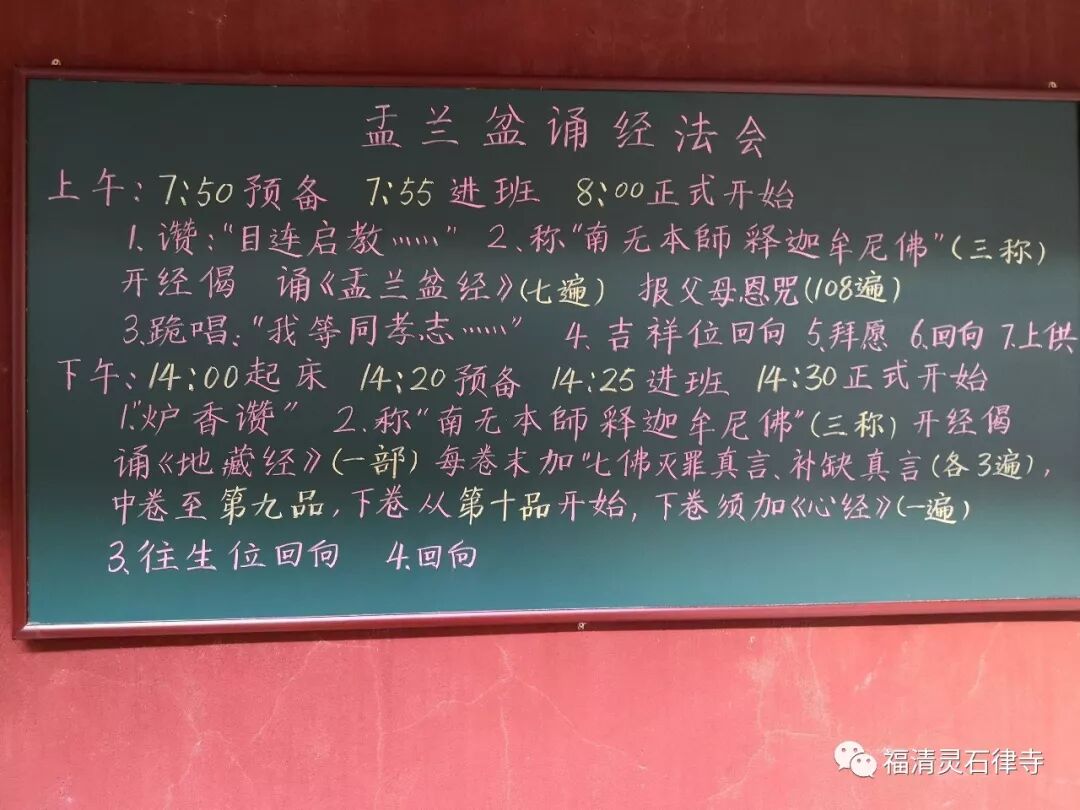 盂兰盆诵经法会
上午:7:50预备 7:55进班 8:00正式开始
1.讚:“目连启教……” 2、称“南无本師释迦牟尼佛”(三称)
开经偈 诵《盂兰盆经》(七遍) 报父母恩咒(108遍)
3.跪唱:“我等同孝志……” 4.吉祥位回向 5.拜愿 6.回向 7.上供
下午:14:00起床 14:20预备 14:25进班 14:30正式开始
1.“炉香讚” 2.称“南无本師释迦牟尼佛”(三称)开经偈
诵《地藏经》(一部)每卷末加“七佛灭罪真言、补缺真言(各3遍),
中卷至第九品,下卷从第十品开始,下卷须加《心经》(一遍)
3.往生位回向 4.回向
福清灵石律寺